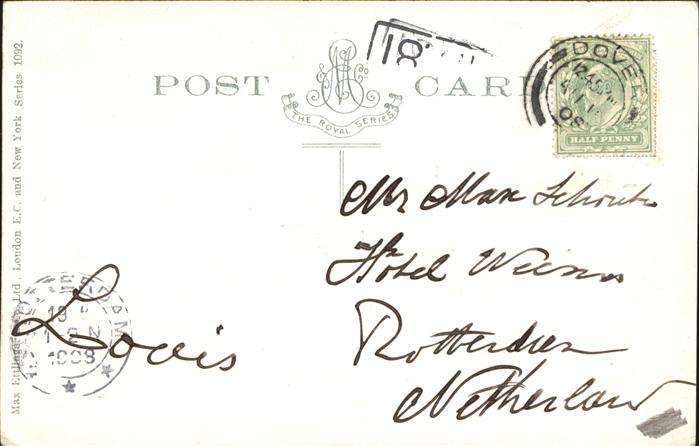 POST CARD
THE ROYAL SERIES
18
DOVE
08
HALF PENNY
Mr Max
Hotel
Rotterdam
Netherland
Louis
1908
Max Ettlinger & Co. Ltd., London E.C. and New York Series 1092.